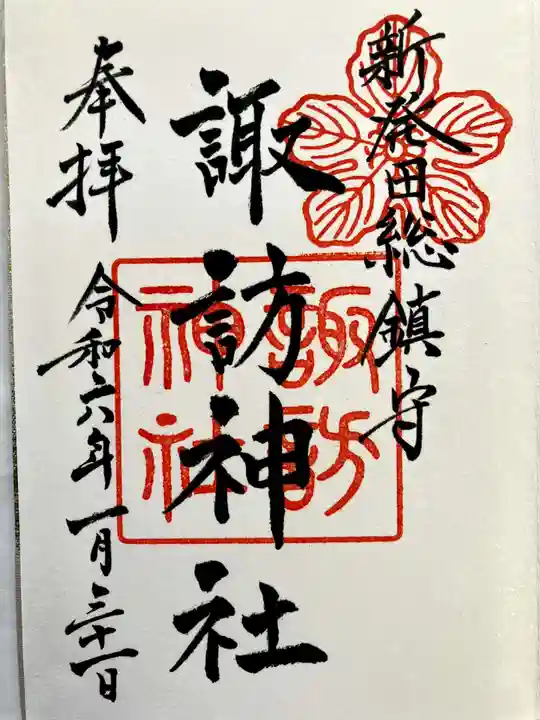 新発田総鎮守
諏訪神社
諏訪
神社
奉拝
令和六年一月三十一日